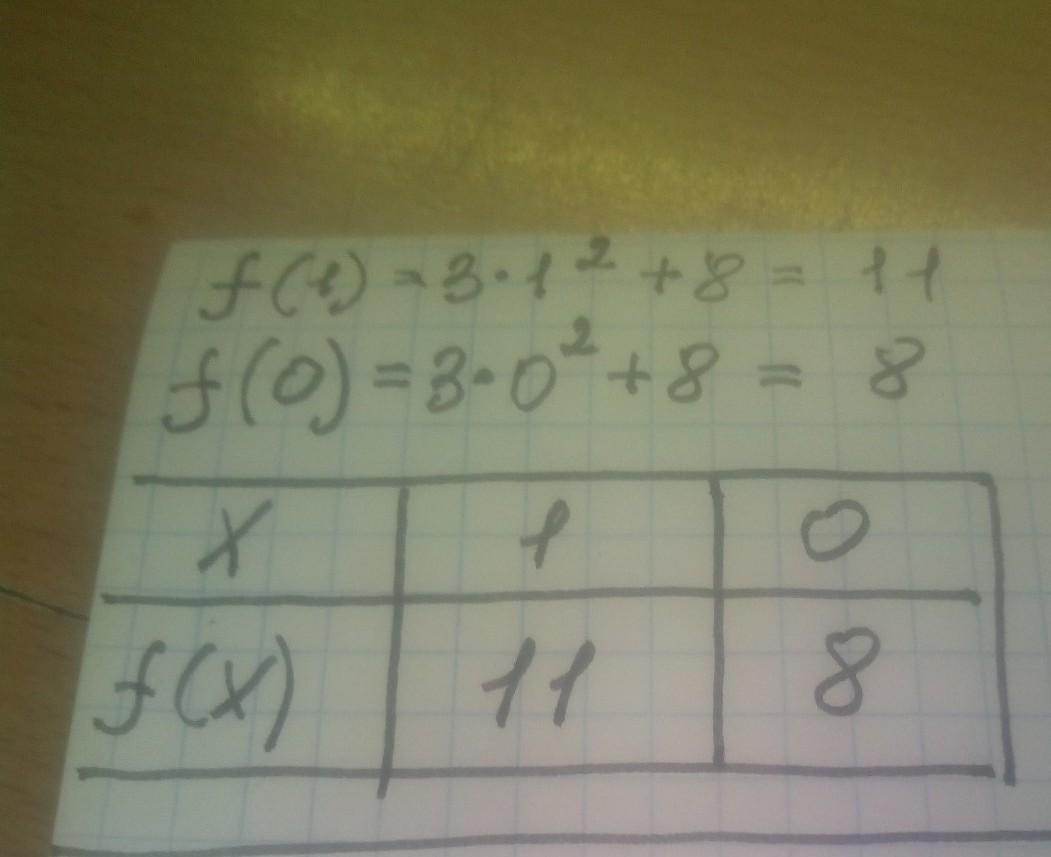 f(1) = 3·1² + 8 = 11
f(0) = 3·0² + 8 = 8
x 1 0
f(x) 11 8